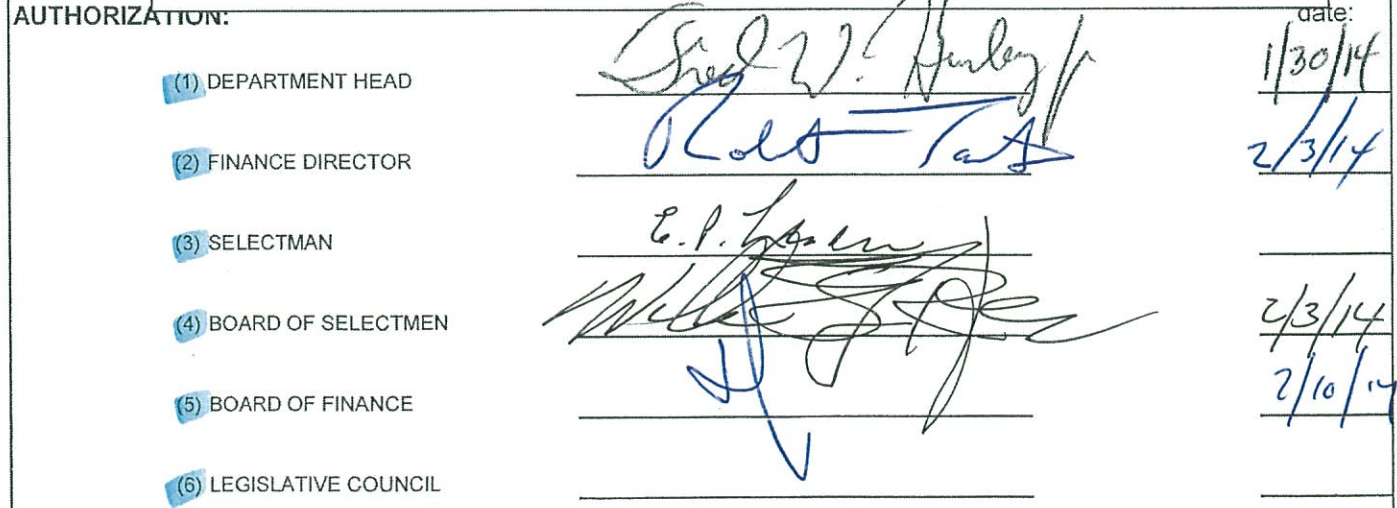 AUTHORIZATION: date:
(1) DEPARTMENT HEAD Fred W. Hurley Jr 1/30/14
(2) FINANCE DIRECTOR Robert Tait 2/3/14
(3) SELECTMAN E.P.
(4) BOARD OF SELECTMEN 2/3/14
(5) BOARD OF FINANCE 2/10/14
(6) LEGISLATIVE COUNCIL